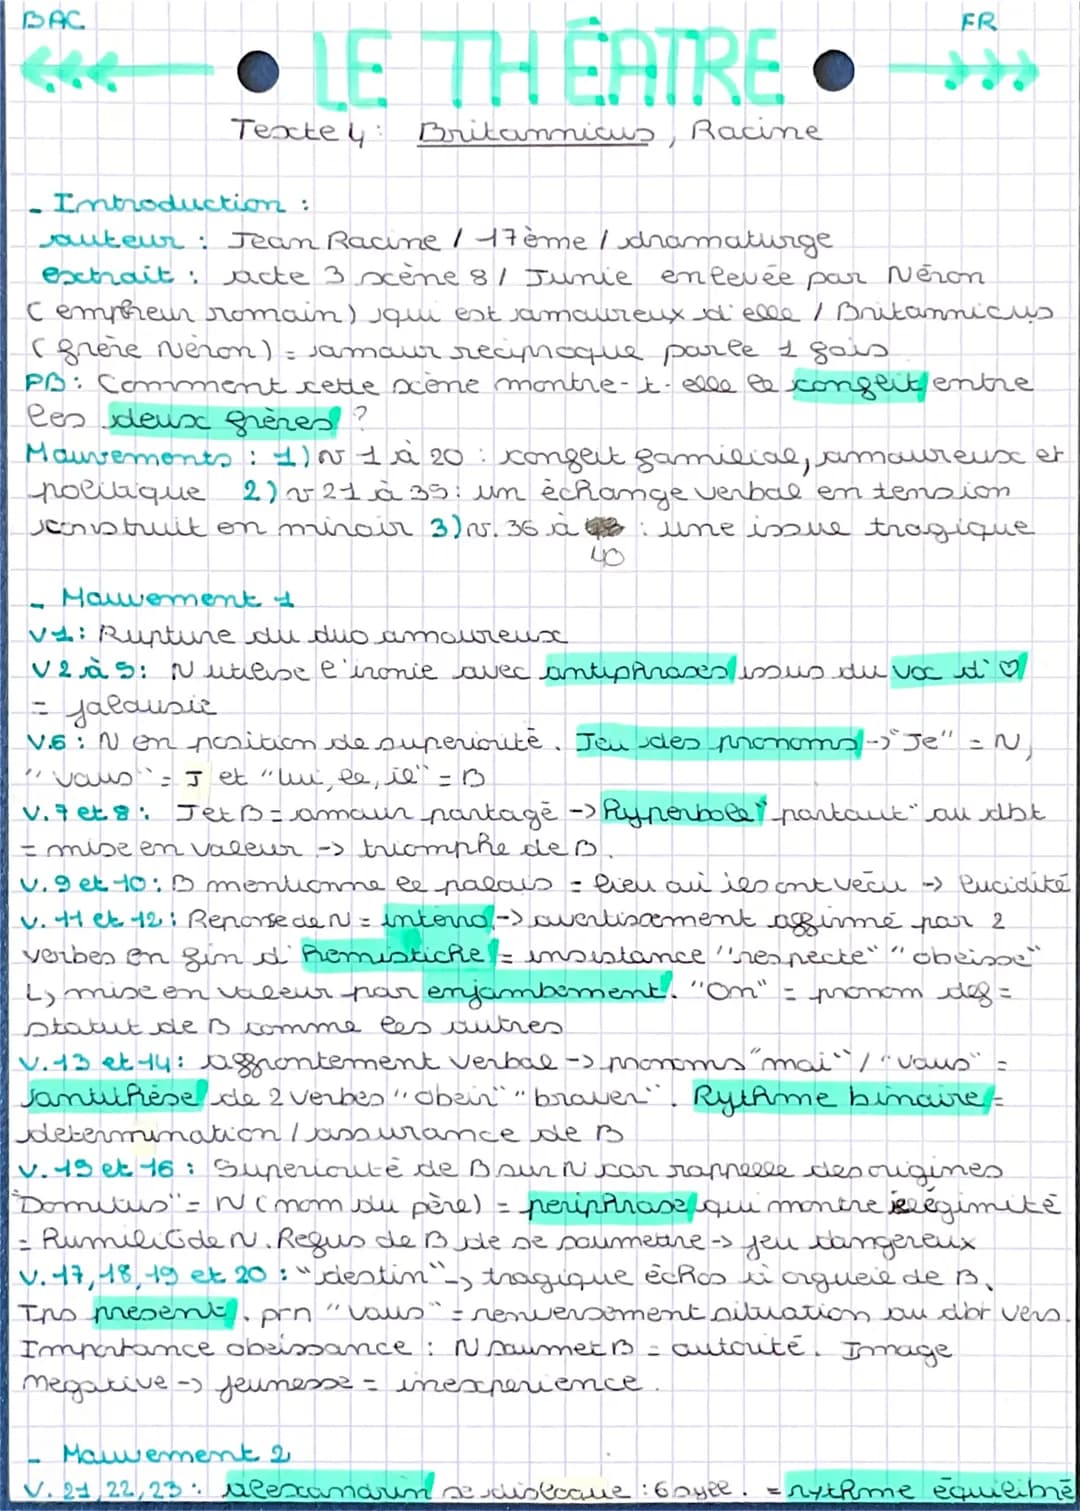 BAC FR
LE THÉATRE
Texte 4 : Britannicus, Racine
- Introduction :
auteur : Jean Racine / 17ème / dramaturge
extrait : acte 3 scène 8 / Junie enlevée par Néron
(empreur romain) qui est amoureux d'elle / Britannicus
(frère Néron) = amour reciproque parle 1 fois
PB : Comment cette scène montre-t-elle le conflit entre
les deux frères ?
Mouvements : 1) v 1 à 20 : conflit familial, amoureux et
politique 2) v 21 à 35 : un échange verbal en tension
construit en miroir 3) v. 36 à : une issue tragique
40
- Mouvement 1
V1 : Rupture du duo amoureux
V2 à 5 : N utilise l'ironie avec antiphrases issus du voc d'♡
= jalousie
V.6 : N en position de superiorité. Jeu des pronoms -> "Je" = N,
"vous" = J et "lui, le, il" = B
V.7 et 8 : J et B = amour partagé -> Hyperbole "partout" au dbt
= mise en valeur -> triomphe de B.
V.9 et 10 : B mentionne le palais = lieu où ils ont vécu -> lucidité
V. 11 et 12 : Reponse de N = -> avertissement affirmé par 2
verbes en fin d'hemistiche = insistance "respecte" "obeisse"
↳ mise en valeur par enjambement. "On" = pronom def =
statut de B comme les autres
V.13 et 14 : affrontement verbal -> pronoms "moi" / "vous" =
antithèse de 2 verbes "obeir" "braver". Rythme binaire =
determination / assurance de B
V.15 et 16 : Superiorité de B sur N car rappelle des origines
"Domitus" = N (nom du père) = periphrase qui montre illégimité
= humilité de N. Refus de B de se soumettre -> jeu dangereux
V.17, 18, 19 et 20 : "destin" -> tragique échos à orgueil de B.
Tps présent. prn "vous" = renversement situation au dbt vers.
Importance obeissance : N soumet B = autorité. Image
negative -> jeunesse = inexperience.
- Mouvement 2
V. 21, 22, 23 : alexandrin se disloque : 6 syll. = rythme équilibré